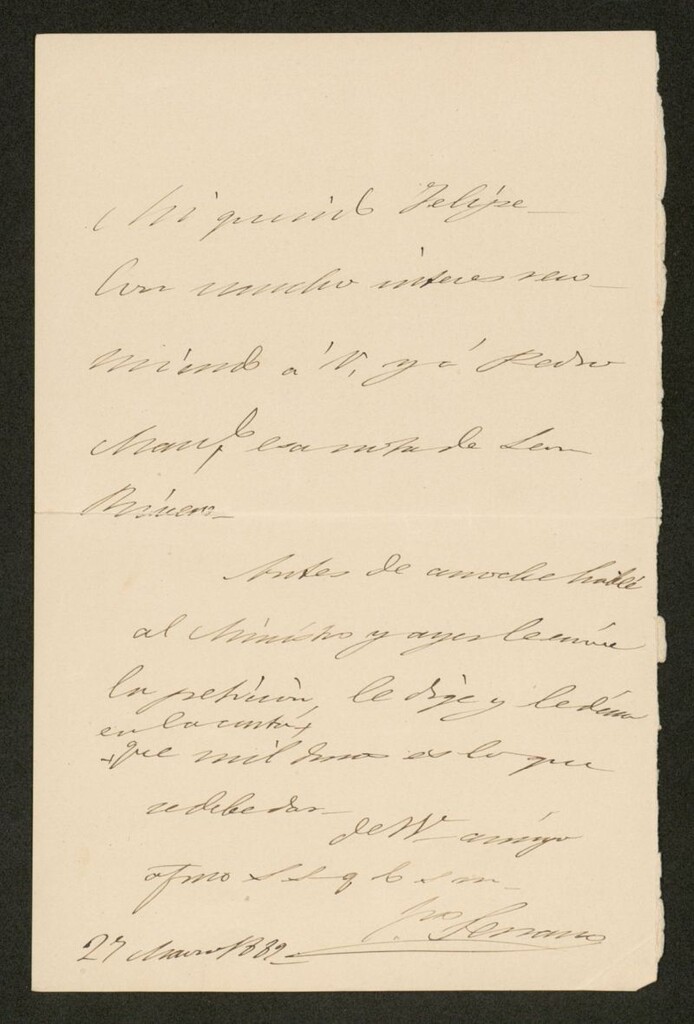 Mi querido Felipe_
Con mucho interes reco_
miendo á V. y á Pedro
esa nota de
Antes de anoche hablé
al Ministro y ayer le envie
la peticion, le dige y le
en la carta
que mil duros es lo que
se debe dar_
de V. amigo
afmo S S q b s m_
Serrano
27 Marzo 1882_